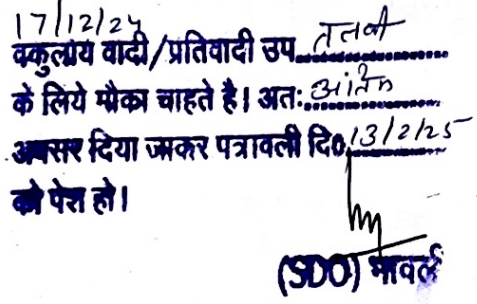 17/12/24
वकुलाय वादी/प्रतिवादी उप तलवी
के लिये मौका चाहते है। अतः अंतिम
अवसर दिया जाकर पत्रावली दि० 13/2/25
को पेश हो।
(SDO) भावर्ल